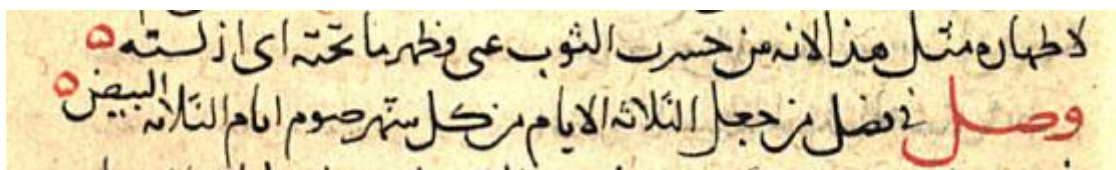 لاظهاره مثل هذا لانه من حسرت الثوب عنى فظهر ما تحته اى ازلته ه
وصل فى فضل من جعل الثلاثة الايام من كل شهر صوم ايام الثلاثة البيض ه